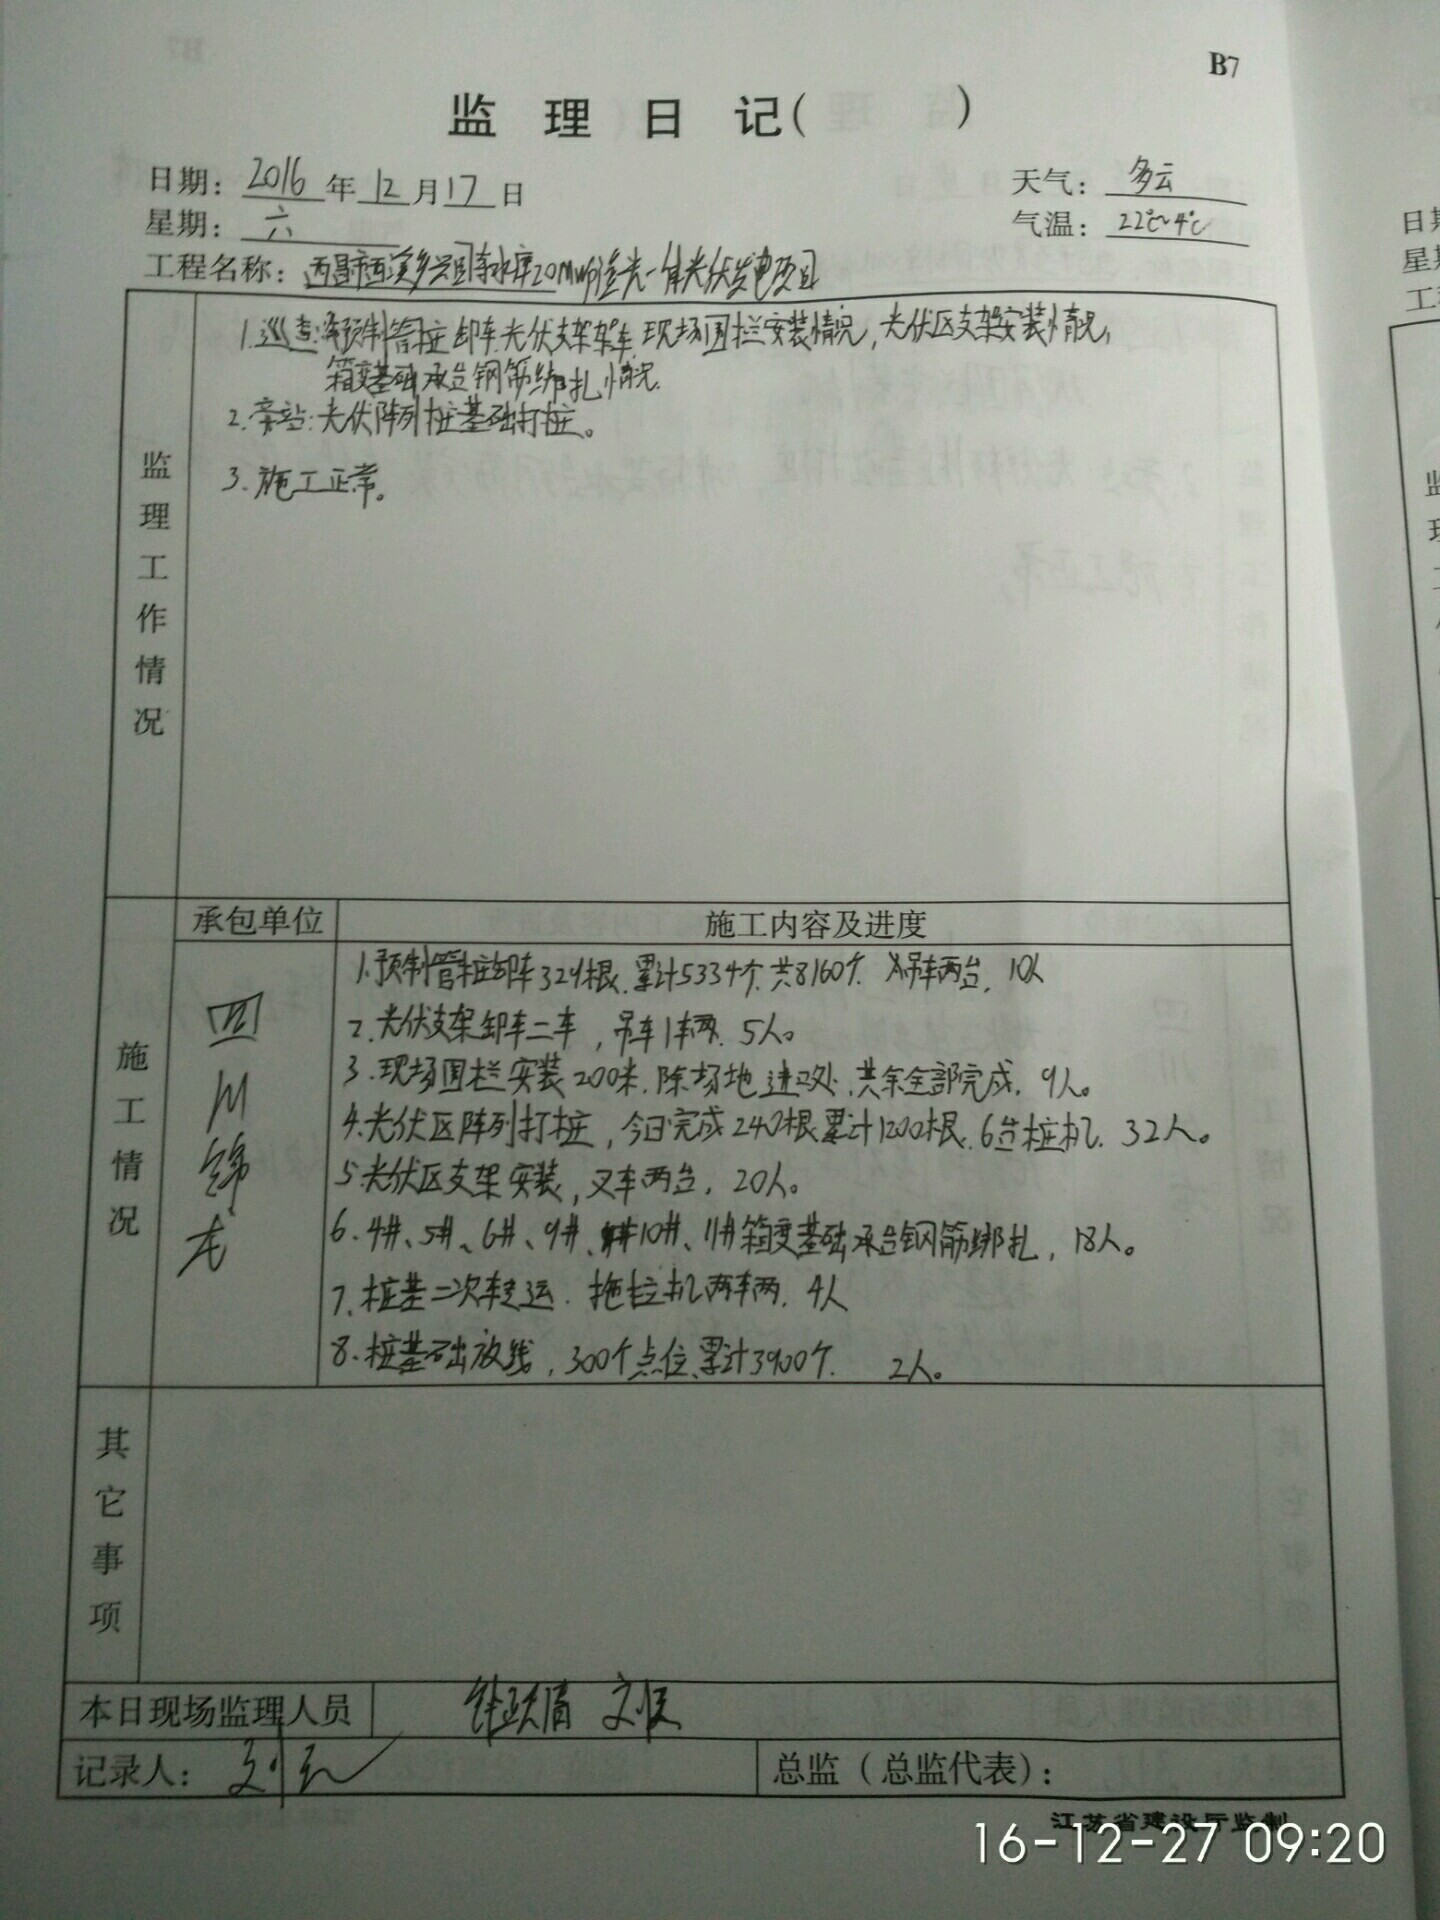 B7
监 理 日 记（ ）
日期：2016年12月17日 天气：多云
星期：六 气温：22℃~4℃
工程名称：西昌市西溪乡兴国寺水库20MWp渔光一体光伏发电项目
1.巡查:预制管桩卸车.光伏支架卸车.现场围栏安装情况,光伏区支架安装情况,
箱变基础承台钢筋绑扎情况.
2.旁站:光伏阵列桩基础打桩。
3.施工正常。
监理工作情况
承包单位 施工内容及进度
施工情况
四川锦
1.预制管桩卸车329根.累计5334个.共8160个. 吊车两台. 10人
2.光伏支架卸车二车,吊车1车两.5人。
3.现场围栏安装200米.除场地进口处.其余全部完成.9人。
4.光伏区阵列打桩,今日完成240根累计1200根.6台桩机.32人。
5.光伏区支架安装,叉车两台.20人。
6.4#、5#、6#、9#、10#、11#箱变基础承台钢筋绑扎,18人。
7.桩基二次转运.拖拉机两车两.4人
8.桩基础放线,300个点位.累计3900个. 2人。
其它事项
本日现场监理人员
记录人：刘 总监（总监代表）：
江苏省建设厅监制
16-12-27 09:20
日期
星期
工